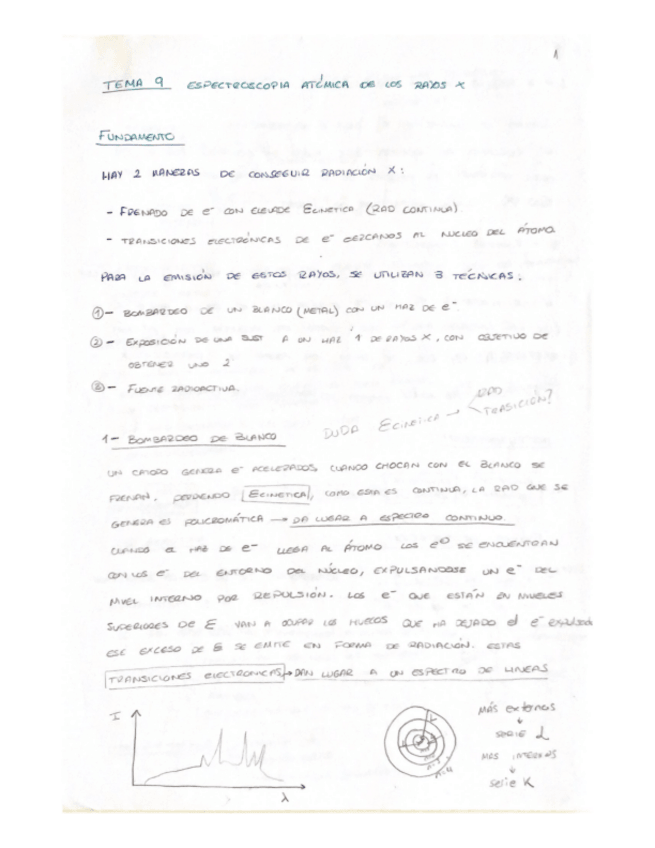 1
TEMA 9 ESPECTROSCOPIA ATÓMICA DE LOS RAYOS X
FUNDAMENTO
HAY 2 MANERAS DE CONSEGUIR RADIACIÓN X:
- FRENADO DE e- CON ELEVADE Ecinetica (RAD CONTINUA)
- TRANSICIONES ELECTRÓNICAS DE e- CERCANOS AL NUCLEO DEL ÁTOMO
PARA LA EMISIÓN DE ESTOS RAYOS, SE UTILIZAN 3 TÉCNICAS:
①- BOMBARDEO DE UN BLANCO (METAL) CON UN HAZ DE e-
②- EXPOSICIÓN DE UNA SUST A UN HAZ 1 DE RAYOS X, CON OBJETIVO DE
OBTENER UNO 2
③- FUENTE RADIOACTIVA.
DUDA Ecinetica → RAD
TRASICIÓN?
1- BOMBARDEO DE BLANCO
UN CATODO GENERA e- ACELERADOS CUANDO CHOCAN CON EL BLANCO SE
FRENAN, PERDIENDO Ecinetica, COMO ESTA ES CONTINUA, LA RAD QUE SE
GENERA ES POLICROMÁTICA → DA LUGAR A ESPECTRO CONTINUO.
CUANDO EL HAZ DE e- LLEGA AL ÁTOMO LOS e- SE ENCUENTRAN
CON LOS e- DEL ENTORNO DEL NÚCLEO, EXPULSANDOSE UN e- DEL
NIVEL INTERNO POR REPULSIÓN. LOS e- QUE ESTÁN EN NIVELES
SUPERIORES DE E VAN A OCUPAR LOS HUECOS QUE HA DEJADO el e- expulsado
ESE EXCESO DE E SE EMITE EN FORMA DE RADIACIÓN. ESTAS
TRANSICIONES ELECTRONICAS → DAN LUGAR A UN ESPECTRO DE LINEAS
I
λ
MÁS externos
↓
SERIE L
MAS INTERNOS
↓
Serie K